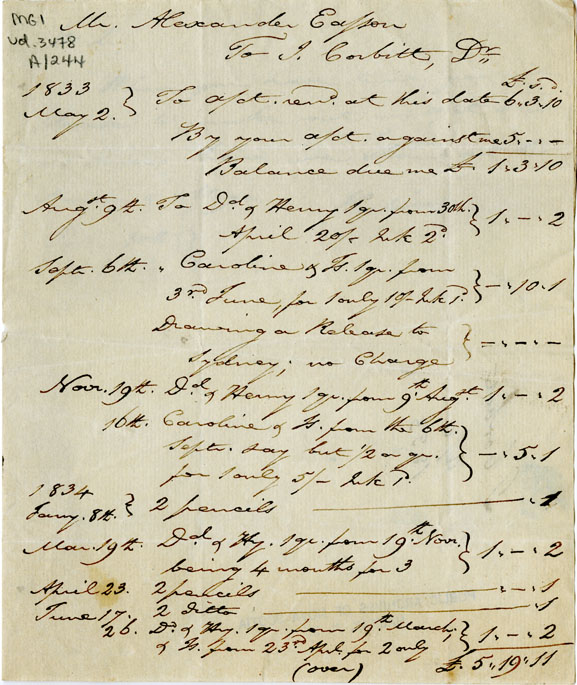 MG1
Vol. 3478
A/244
Mr. Alexander Easson
To J. Corbitt, Dr,,
£. s. d.
1833
May 2. } To acct. rend. at this date 6. 3. 10
By your acct. against me 5. - -
Balance due me £ 1. 3. 10
Augst. 9th. To Dd. & Henry 1 qr. from 30th.
April 20/- Ink 2d. } 1. - . 2
Septr. 6th. " Caroline & Js. 1 qr. from
3rd June, for 1 only 10/- Ink 1d. } - . 10. 1
Drawing a Release to
Sydney; no Charge } - . - . -
Novr. 19th. Dd. & Henry 1 qr. from 9th Augst. 1. - . 2
16th. Caroline & Js. from the 6th.
Septr. say but 1/2 a qr.
for 1 only 5/- Ink 1d. } - . 5. 1
1834
Jany. 8th. } 2 pencils . 1
Mar. 19th. Dd. & Hy. 1 qr. from 19th Novr.
being 4 months for 3 } 1. - . 2
April 23. 2 pencils - . 1
June 17. 2 ditto . 1
26. Dd. & Hy. 1 qr. from 19th. March;
& Js. from 23rd Apl. for 2 only } 1. - . 2
(over) £. 5. 19. 11